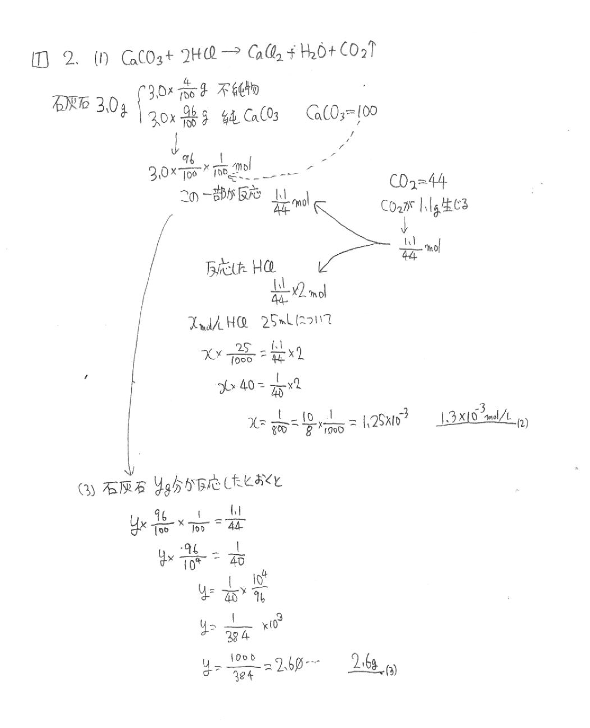 ① 2. (1) CaCO3 + 2HCl → CaCl2 + H2O + CO2↑
石灰石 3.0g { 3.0 × 4/100 g 不純物
3.0 × 96/100 g 純 CaCO3 CaCO3=100
3.0 × 96/100 × 1/100 mol
この一部が反応 1.1/44 mol
CO2=44
CO2が 1.1g生じる
1.1/44 mol
反応した HCl
1.1/44 ×2 mol
x mol/L HCl 25mLについて
x × 25/1000 = 1.1/44 × 2
x × 40 = 1/40 ×2
x = 1/800 = 10/8 × 1/1000 = 1.25×10^-3 1.3×10^-3 mol/L (2)
(3) 石灰石 yg分が反応したとおくと
y × 96/100 × 1/100 = 1.1/44
y × 96/10^4 = 1/40
y = 1/40 × 10^4/96
y = 1/384 ×10^3
y = 1000/384 = 2.60⋯ 2.6g (3)